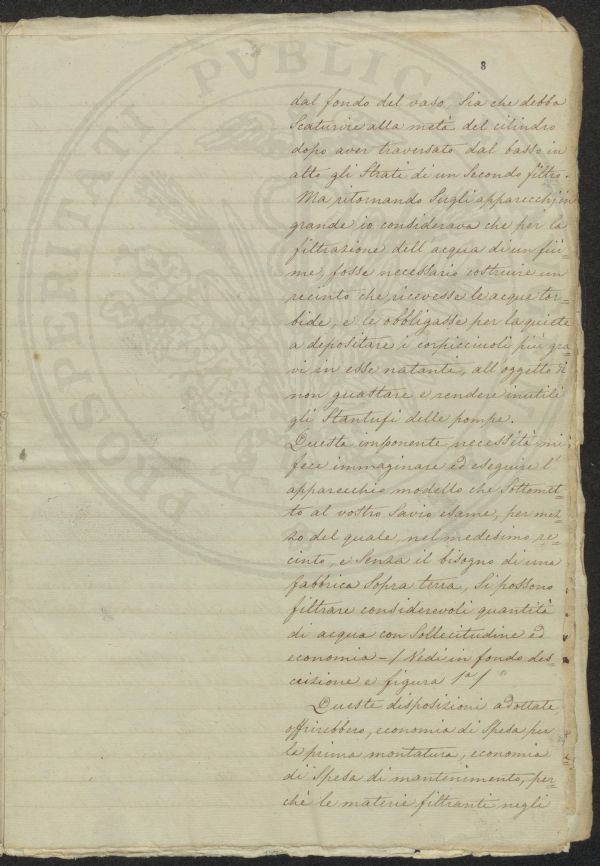 PROSPERITATI PVBLICAE
8
dal fondo del vaso, Sia che debba
Scaturire alla metà del cilindro
dopo aver traversato dal basso in
alto gli Strati di un Secondo filtro.
Ma ritornando Sugli apparecchj in
grande io considerava che per la
filtrazione dell'acqua di un fiu=
me, fosse necessario costruire un
recinto che ricevesse le acqua tor=
bide, e le obbligasse per la quiete
a depositare i corpicciuoli più gra=
vi in esse natanti, all'oggetto di
non guastare e rendere inutili
gli Stantufi delle pompe.
Questa imponente necessità mi
feci immaginare ed eseguire l'
apparecchio modello che Sottomet=
to al vostro Savio esame, per mez=
zo del quale, nel medesimo re=
cinto, e Senza il bisogno di una
fabbrica Sopra terra, Si possono
filtrare considerevoli quantità
di acqua con Sollecitudine ed
economia -/ Vedi in fondo des=
crizione e figura 1ª/
Queste disposizioni adottate,
offrirebbero, economia di Spesa per
la prima montatura, economia
di Spesa di mantenimento, per=
chè le materie filtranti negli